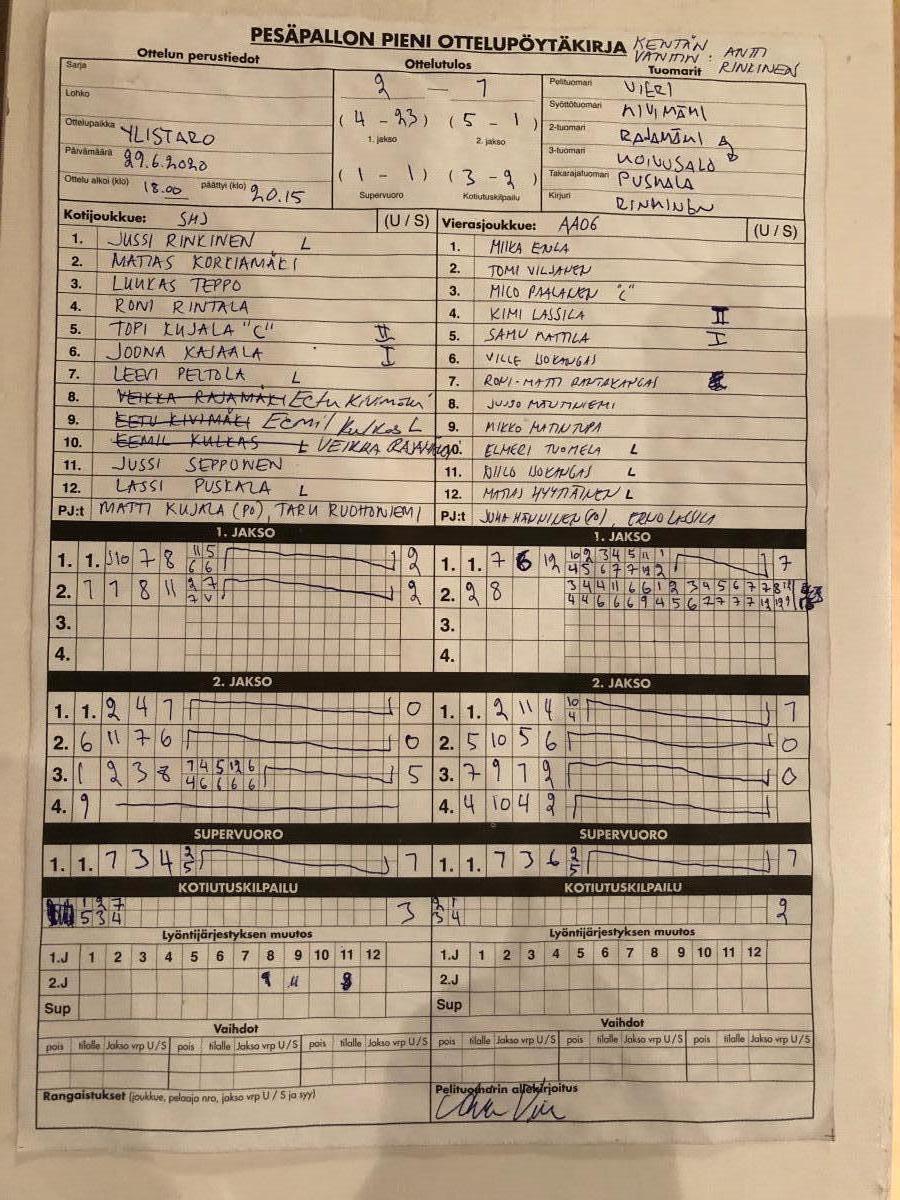 PESÄPALLON PIENI OTTELUPÖYTÄKIRJA KENTÄN
ANTTI
RINKINEN
Ottelun perustiedot Ottelutulos Tuomarit
Sarja 2 — 1 Pelituomari VIERI
Lohko (4 - 23) (5 - 1) Syöttötuomari KIVIMÄKI
1. jakso 2. jakso
Ottelupaikka YLISTARO 2-tuomari RAJAMÄKI
Päivämäärä 29.6.2020 3-tuomari KOIVUSALO
(1 - 1) (3 - 2) Takarajatuomari PUSKALA
Ottelu alkoi (klo) 18.00 päättyi (klo) 20.15 Supervuoro Kotiutuskilpailu Kirjuri RINKINEN
Kotijoukkue: SMJ (U / S) Vierasjoukkue: AA06 (U / S)
1. JUSSI RINKINEN L 1. MIIKA ENLA
2. MATIAS KORKIAMÄKI 2. TOMI VILJANEN
3. LUUKAS TEPPO 3. MICO PAALANEN "C"
4. RONI RINTALA 4. KIMI LASSILA II
5. TOPI KUJALA "C" II 5. SAMU MATTILA I
6. JOONA KAJAALA I 6. VILLE ISOKANGAS
7. LEEVI PELTOLA L 7. RONI-MATTI RANTAKANGAS
8. VEIKKA RAJAMÄKI Eetu Kivimäki 8. JUSSO MÄNTINIEMI
9. EETU KIVIMÄKI Eemil Kulkas L 9. MIKKO MATINTUPA
10. EEMIL KULKAS L VEIKKA RAJAMÄKI 10. ELMERI TUOMELA L
11. JUSSI SEPPONEN 11. NIILO ISOKANGAS L
12. LASSI PUSKALA L 12. MATIAS HYYTIÄINEN L
PJ:t MATTI KUJALA (PO), TARU RUOHONIEMI PJ:t JUHA HÄNNINEN (PO), ERNO LASSILA
1. JAKSO 1. JAKSO
1. 1. 10 7 8 11 5 2 1. 1. 7 6 12 10 2 3 4 5 11 1 7
6 6 4 5 6 7 7 12 2
2. 7 7 8 11 2 7 2 2. 2 8 3 4 4 11 6 6 1 2 3 4 5 6 7 7 8 12
7 V 4 4 6 6 6 9 4 5 6 7 7 7 12 12 9
3. 3.
4. 4.
2. JAKSO 2. JAKSO
1. 1. 2 4 7 0 1. 1. 2 11 4 10 1
4
2. 6 11 7 6 0 2. 5 10 5 6 0
3. 1 2 3 8 1 4 5 12 6 5 3. 7 9 7 2 0
4 6 6 6 6
4. 9 4. 4 10 4 2
SUPERVUORO SUPERVUORO
1. 1. 7 3 4 2 1 1. 1. 7 3 6 2 1
5 5
KOTIUTUSKILPAILU KOTIUTUSKILPAILU
1 2 7 3 2 1 2
5 3 4 3 4
Lyöntijärjestyksen muutos Lyöntijärjestyksen muutos
1.J 1 2 3 4 5 6 7 8 9 10 11 12 1.J 1 2 3 4 5 6 7 8 9 10 11 12
2.J 9 11 8 2.J
Sup Sup
Vaihdot Vaihdot
pois tilalle Jakso vrp U/S pois tilalle Jakso vrp U/S pois tilalle Jakso vrp U/S pois tilalle Jakso vrp U/S pois tilalle Jakso vrp U/S pois tilalle Jakso vrp U/S
Rangaistukset (joukkue, pelaaja nro, jakso vrp U / S ja syy) Pelituomarin allekirjoitus